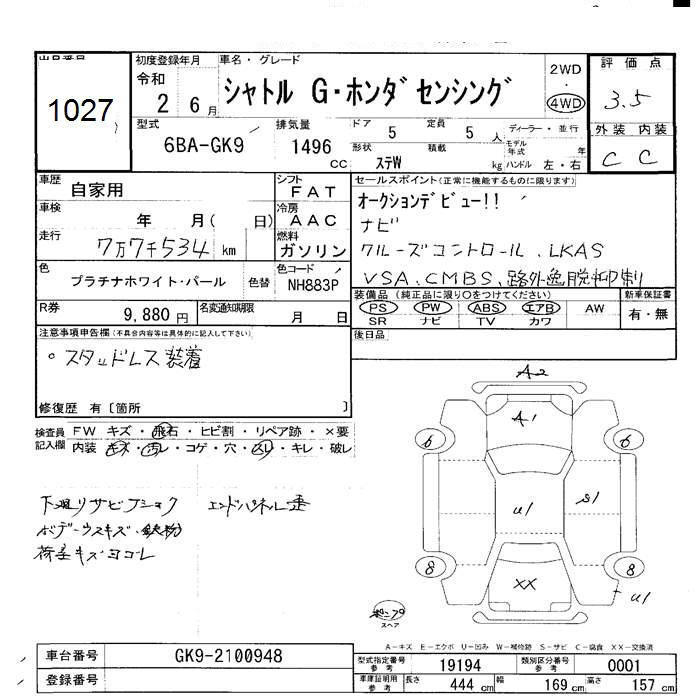 出品番号
1027
初度登録年月
令和
2 6月
車名・グレード
シャトル G・ホンダセンシング
2WD
・
4WD
評価点
3.5
型式
6BA-GK9
排気量
1496 CC
ドア
5
定員
5 人
形状
ステW
積載
kg
ディーラー・並行
モデル年式
年
ハンドル 左・右
外装 内装
C C
車歴
自家用
シフト
FAT
車検
年 月( 日)
冷房
AAC
走行
7万7千534 km
燃料
ガソリン
色
プラチナホワイト・パール
色替
色コード
NH883P
R券
9,880円
名変通知期限
月 日
セールスポイント(正常に機能するものに限ります)
オークションデビュー!!
ナビ
クルーズコントロール、LKAS
VSA、CMBS、路外逸脱抑制
装備品(純正品に限り○をつけてください)
PS PW ABS エアB AW
SR ナビ TV カワ
新車保証書
有・無
後日品
注意事項申告欄(不具合内容等は具体的に記入して下さい)
○スタッドレス装着
修復歴 有〔箇所 〕
検査員記入欄
FW キズ・飛石・ヒビ割・リペア跡・×要
内装・キズ・汚レ・コゲ・穴・スレ・キレ・破レ
下廻りサビ エンドパネル歪
ボデーウスキズ・鉄粉
荷室キズヨゴレ
A2
A1
6
6
U1
S1
8
8
XX
U1
スペア
A-キズ E-エクボ U-凹み W-補修跡 S-サビ C-腐食 XX-交換済
車台番号
GK9-2100948
登録番号
型式指定番号 参考
19194
類別区分番号 参考
0001
車庫証明用 参考
長さ 444 cm
幅 169 cm
高さ 157 cm